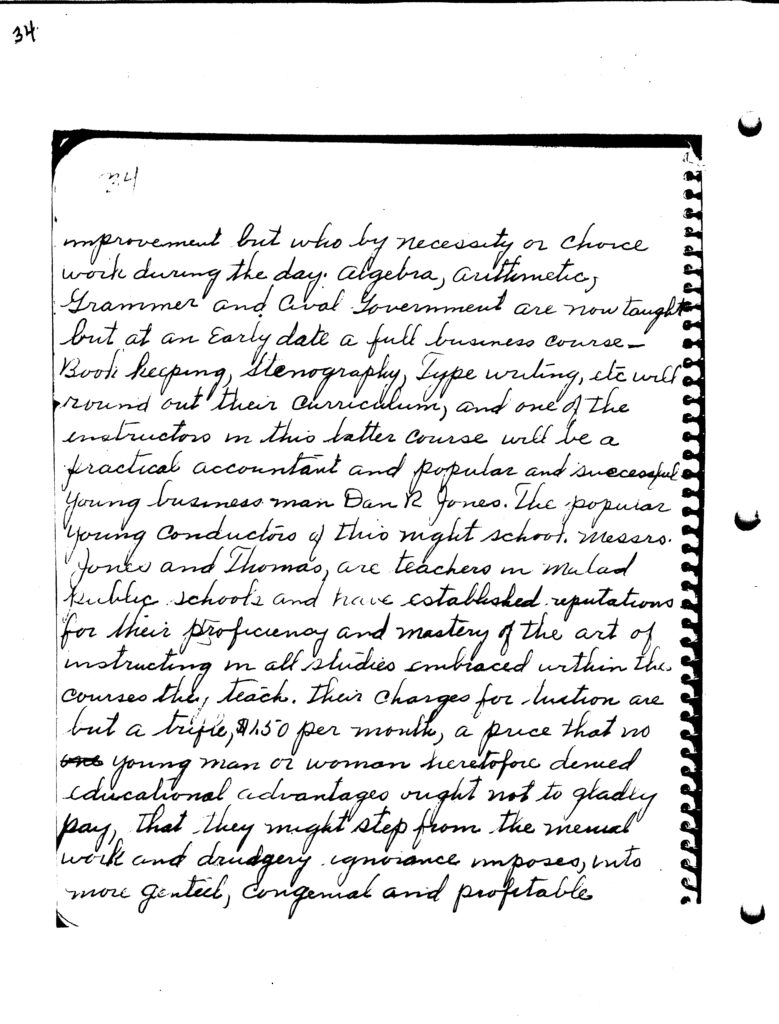 34
34
improvement but who by necessity or choice
work during the day. Algebra, arithmetic,
Grammer and Cival Government are now taught
but at an Early date a full business course—
Book keeping, Stenography, Type writing, etc will
round out their curriculum, and one of the
instructors in this latter course will be a
practical accountant and popular and successful
young business man Dan R Jones. The popular
young conductors of this night school. Messrs.
Jones and Thomas, are teachers in Malad
Public schools and have established reputations
for their proficiency and mastery of the art of
instructing in all studies embraced within the
courses they teach. Their charges for tuation are
but a trifle, $1.50 per month, a price that no
one young man or woman heretofore denied
educational advantages ought not to gladly
pay, that they might step from the menial
work and drudgery ignorance imposes, into
more genteel, congenial and profitable